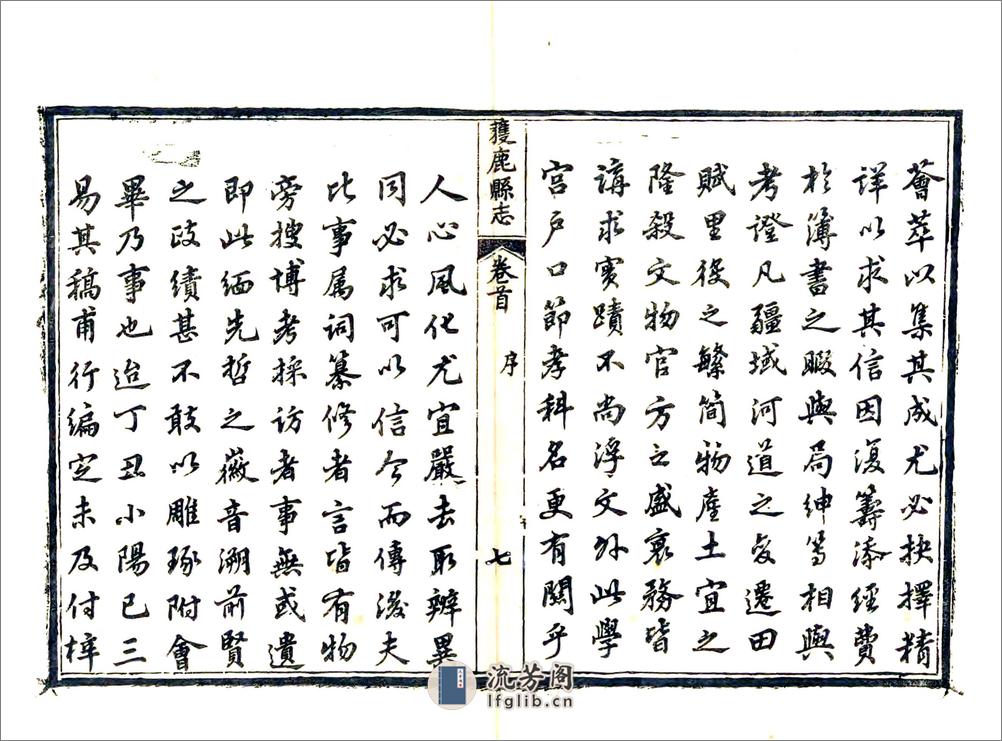 薈萃以集其成尤必抉擇精
詳以求其信因復籌添經費
於簿書之暇與局紳等相與
考證凡疆域河道之變遷田
賦里役之繁简物產土宜之
隆殺文物官方之盛衰務皆
講求實蹟不尚浮文外此學
宮户口節孝科名更有關乎
獲鹿縣志
卷首
序
七
人心風化尤宜嚴去取辨異
同必求可以信今而傳後夫
比事属词纂修者言皆有物
旁搜博考採访者事無或遺
即此缅先哲之徽音溯前賢
之政績甚不敢以雕琢附會
畢乃事也迨丁丑小陽已三
易其稿甫行编定未及付梓
流芳阁
lfglib.cn